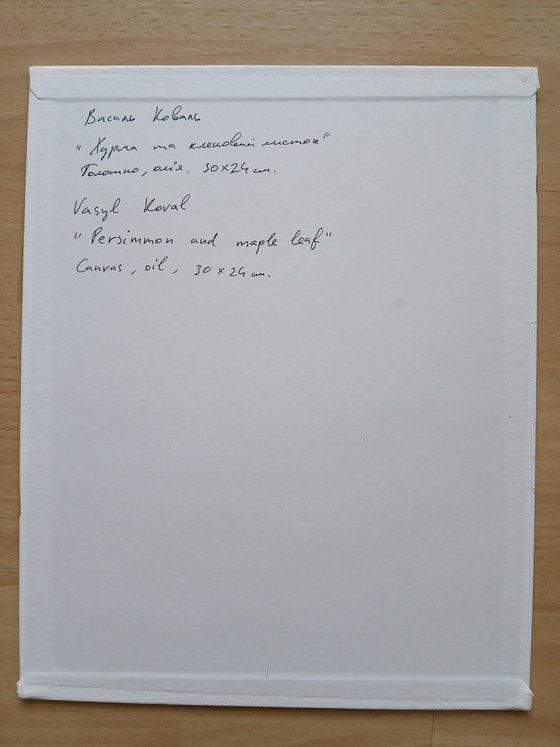 Василь Коваль
"Хурма та кленовий листок"
Полотно, олія, 30x24 см.
Vasyl Koval
"Persimmon and maple leaf"
Canvas, oil, 30x24 cm.